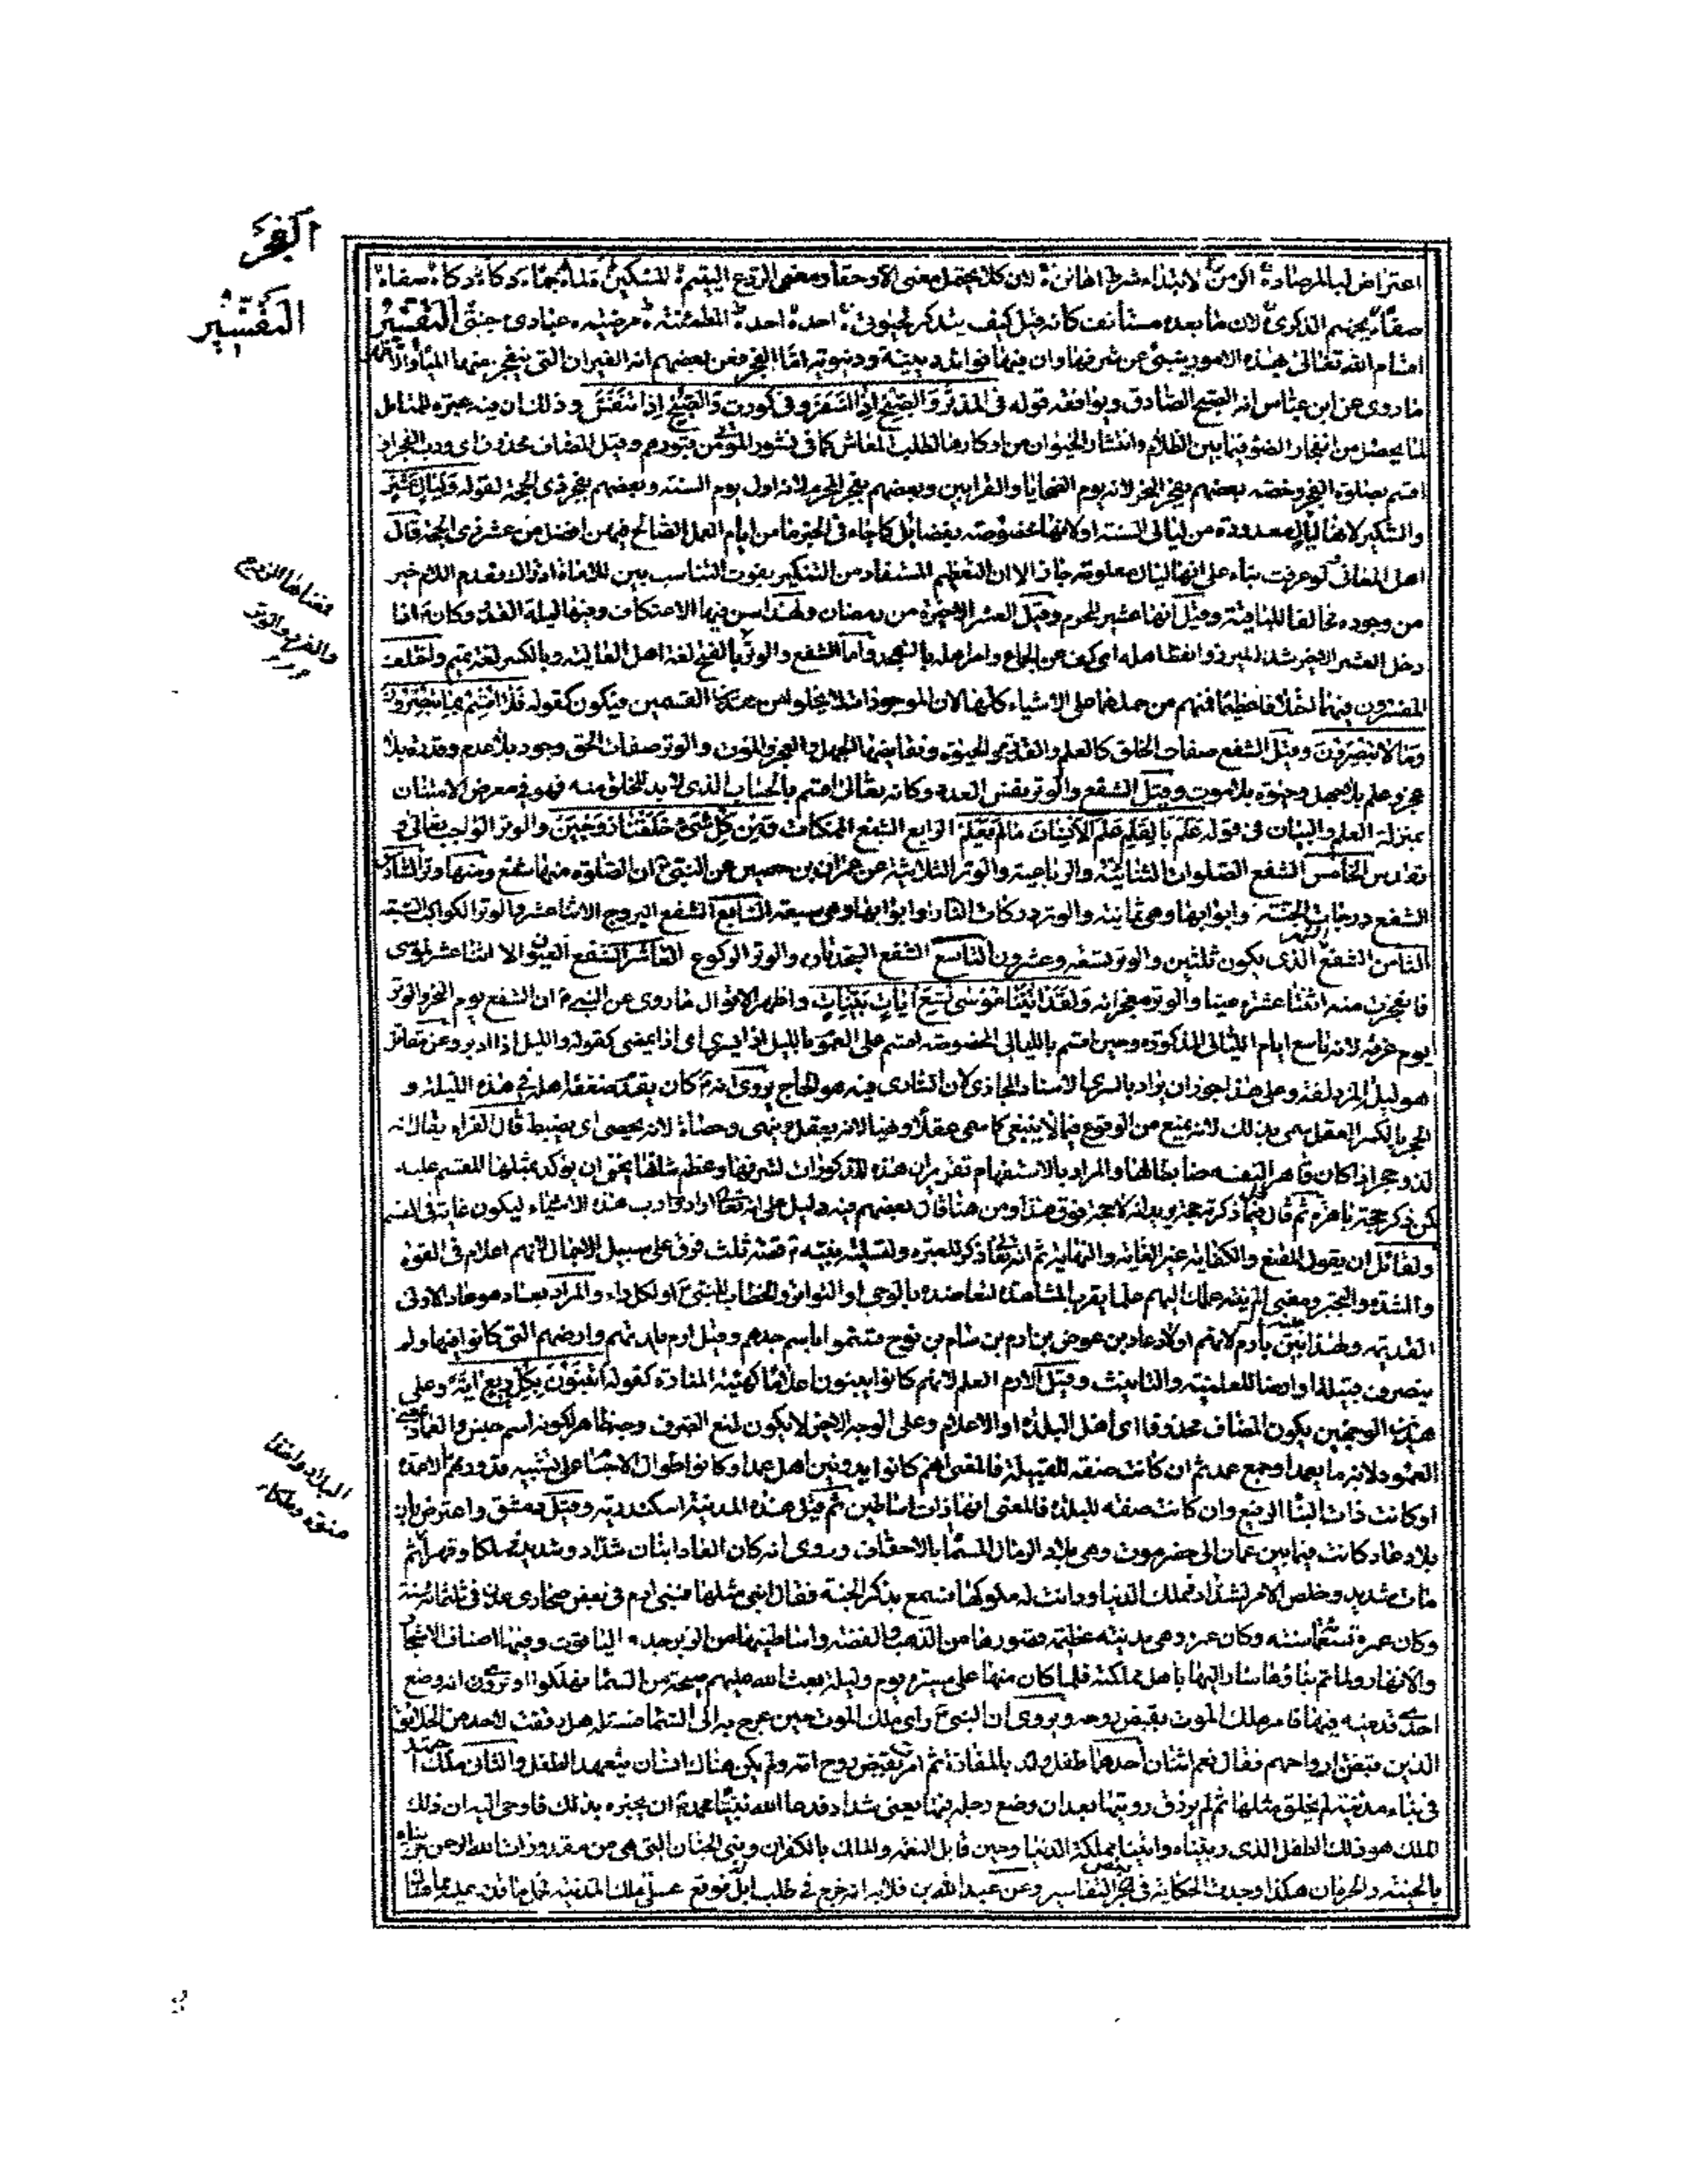 الفجر
التفسير
اعتراض لبالمرصاد اكرمن لابتداء شرط اهانن لان كلا يحتمل معنى الا وحقا ومعنى الردع اليتيم المسكين لما جما دكا دكا صفا
صفا بجهنم الذكرى لان ما بعده مستأنف كانه قيل كيف يتذكر لحيوتي احد احد المطمئنة مرضية عبادي جنتي التفسير
اقسام الله تعالى بهذه الامور ينبئ عن شرفها وان فيها فوائد دينية ودنيوية اما الفجر فعن بعضهم انه العيون التي ينفجر منها المياه والاظهر
ما روى عن ابن عباس انه الصبح الصادق ويوافقه قوله في المدثر والصبح اذا اسفر وفي كورت والصبح اذا تنفس وذلك ان فيه عبرة للمتأمل
لما يحصل من انفجار الضوء فيما بين الظلام وانتشار الحيوان من اوكارها لطلب المعاش كما في نشور الموتى من قبورهم وقيل المضاف محذوف اى ورب الفجر او
اقسم بصلوة الفجر وخصه بعضهم بفجر النحر لانه يوم الضحايا والقرابين وبعضهم بفجر المحرم لانه اول يوم السنة وبعضهم بفجر ذى الحجة لقوله وليال عشر
والتنكير لانها ليال معدودة من ليالى السنة او لانها مخصوصة بفضائل كما جاء في الخبر ما من ايام العمل الصالح فيهن افضل من عشر ذى الحجة قال
اهل المعانى لو عرفت بناء على انها ليال معلومة جاز الا ان التعظيم المستفاد من التنكير يفوت التناسب بين اللامات
من وجوده مخالفا للباقية وقيل انها عشر المحرم وقيل العشر الاخيرة من رمضان ولهذا سن فيها الاعتكاف وفيها ليلة القدر وكان اذا
دخل العشر الاخير شد الميزر وايقظ اهله اى كف عن الجماع وامر اهله بالتهجد واما الشفع والوتر بالفتح لغة اهل العالية وبالكسر لغة تميم واختلف
المفسرون فيهما اختلافا عظيما فمنهم من حملهما على الاشياء كلها لان الموجودات لا يخلو من هذين القسمين فيكون كقوله فلا اقسم بما تبصرون
وما لا تبصرون وقيل الشفع صفات الخلق كالعلم والقدرة والحيوة ونقايضها الجهل والعجز والموت والوتر صفات الحق وجود بلا عدم وقدرة بلا
عجز وعلم بلا جهل وحيوة بلا موت وقيل الشفع والوتر نفس العدد وكانه تعالى اقسم بالحساب الذى لا بد للخلق منه فهو في معرض الامتنان
بمنزلة العلم والبيان في قوله علم بالقلم علم الانسان ما لم يعلم الرابع الشفع الممكنات ومن كل شئ خلقنا زوجين والوتر الواجب تعالى و
تقدس الخامس الشفع الصلوات الثنائية والرباعية والوتر الثلاثية عن عمران بن حصين عن النبي ان الصلوة منها شفع ومنها وتر السادس
الشفع درجات الجنة وابوابها وهى ثمانية والوتر دركات النار او ابوابها وهى سبعة السابع الشفع البروج الاثنا عشر والوتر الكواكب السبعة
الثامن الشفع الشهر الذى يكون ثلثين والوتر تسعة وعشرون التاسع الشفع السجدتان والوتر الركوع العاشر الشفع العيون الاثنا عشر لموسى
فانفجرت منه اثنتا عشرة عينا والوتر معجزاته ولقد اتينا موسى تسع آيات بينات واظهر الاقوال ما روى عن النبي ان الشفع يوم النحر والوتر
يوم عرفة لانه تاسع ايام الليالى المذكورة وحين اقسم بالليالى المخصوصة اقسم على العموم بالليل اذا يسرى اى اذا يمضى كقوله والليل اذا ادبر وعن مقاتل
هو ليل المزدلفة وعلى هذا يجوز ان يراد بالسرى الاسناد المجازى لان السارى فيه هو الحاج يروى انه كان يقدم ضعفة اهله في هذه الليلة و
الحجر بالكسر العقل سمى بذلك لانه يمنع من الوقوع فيما لا ينبغى كما سمى عقلا ونهية لانه يعقل وينهى وحصاة لانه يحصى اى يضبط قال الفراء يقال انه
لذو حجر اذا كان قاهرا لنفسه ضابطا لها والمراد بالاستفهام تقرير ان هذه المذكورات لشرفها وعظم شانها يحق ان يؤكد بمثلها المقسم عليه
كمن ذكر حجة باهرة ثم قال هل فيما ذكرته حجة يريد انه لا حجة فوق هذا ومن هنا قال بعضهم فيه دليل على انه تعالى اراد ورب هذه الاشياء ليكون غاية في القسم
ولقائل ان يقول المقنع والكفاية غير الغاية والنهاية ثم انه تعالى ذكر للعبرة ولتسلية نبيه قصة ثلث فرق على سبيل الاجمال لانهم اعلام في القوة
والشدة والتجبر ومعنى الم تر الم ينته علمك اليهم علما يقرب المشاهدة لتعاضده بالوحى او التواتر والخطاب للنبي او لكل راء والمراد بعاد هو عاد الاولى
القديمة ولهذا بين بارم لانهم اولاد عاد بن عوص بن ارم بن سام بن نوح فسموا باسم جدهم وقيل ارم بلدتهم وارضهم التي كانوا فيها ولم
ينصرف قبيلة او ارضا للعلمية والتانيث وقيل الارم العلم لانهم كانوا يبنون اعلاما كهيئة المنارة كقوله اتبنون بكل ريع آية وعلى
هذين الوجهين يكون المضاف محذوفا اى اهل البلدة او الاعلام وعلى الوجه الاخير لا يكون لمنع الصرف وجه ظاهر لكونه اسم جنس والعماد بمعنى
العمود لانه ما يعمد او جمع عمد ثم ان كانت صفة للقبيلة فالمعنى انهم كانوا بدويين اهل عمد او كانوا طوال الاجسام على تشبيه قدودهم بالاعمدة
او كانت ذات البناء الرفيع وان كانت صفة للبلدة فالمعنى انها ذات اساطين ثم قيل هذه المدينة اسكندرية وقيل دمشق واعترض بان
بلاد عاد كانت فيما بين عمان الى حضرموت وهى بلاد الرمال المسماة بالاحقاف وروى انه كان لعاد ابنان شداد وشديد فملكا وقهرا ثم
مات شديد وخلص الامر لشداد فملك الدنيا ودانت له ملوكها فسمع بذكر الجنة فقال ابنى مثلها فبنى ارم في بعض صحارى عدن في ثلثمائة سنة
وكان عمره تسعمائة سنة وكان عمره وهى مدينة عظيمة قصورها من الذهب والفضة واساطينها من الزبرجد و الياقوت وفيها اصناف الاشجار
والانهار ولما تم بناؤها سار اليها باهل مملكته فلما كان منها على مسيرة يوم وليلة بعث الله عليهم صيحة من السماء فهلكوا او ترون انه وضع
احدى قدميه فيها فامر ملك الموت بقبض روحه ويروى ان النبي راى ملك الموت حين عرج به الى السماء فسئله هل رققت لاحد من الخلائق
الذين قبضت ارواحهم فقال نعم اثنان احدهما طفل ولد بالمفازة ثم امر بقبض روح امه ولم يكن هناك انسان يتعهد الطفل والثانى ملك اجتهد
في بناء مدينة لم يخلق مثلها ثم لم يرزق رويتها بعد ان وضع رجله فيها يعنى شداد فدعا الله نبينا محمد ان يخبره بذلك فاوحى اليه ان ذلك
الملك هو ذلك الطفل الذى ربيناه واتيناه مملكة الدنيا وحين قابل النعمة والملك بالكفران وبنى الجنان التي هى من مقدورات الله الرحمن جزاء
بالخيبة والحرمان هكذا وجدت الحكاية في بعض التفاسير وعن عبد الله بن قلابة انه خرج في طلب ابل له فوقع على تلك المدينة فحمل ما قدر عليه مما هناك
ومعناهما الزوج
والفرد والوتر
البلاد واهلها
صفة